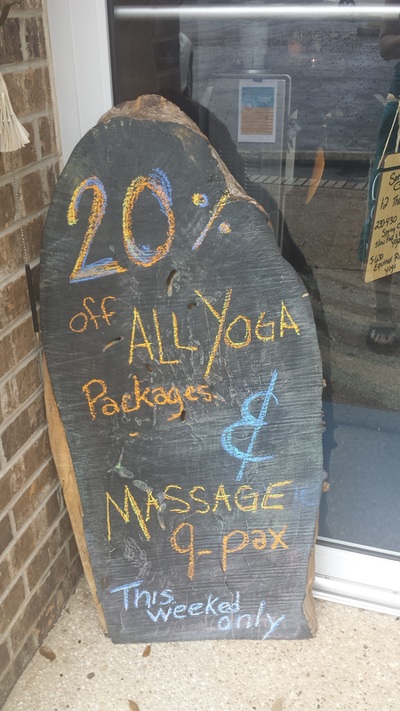 20%
off ALL YOGA
Packages
&
MASSAGE
9-pax
This
weeked
only